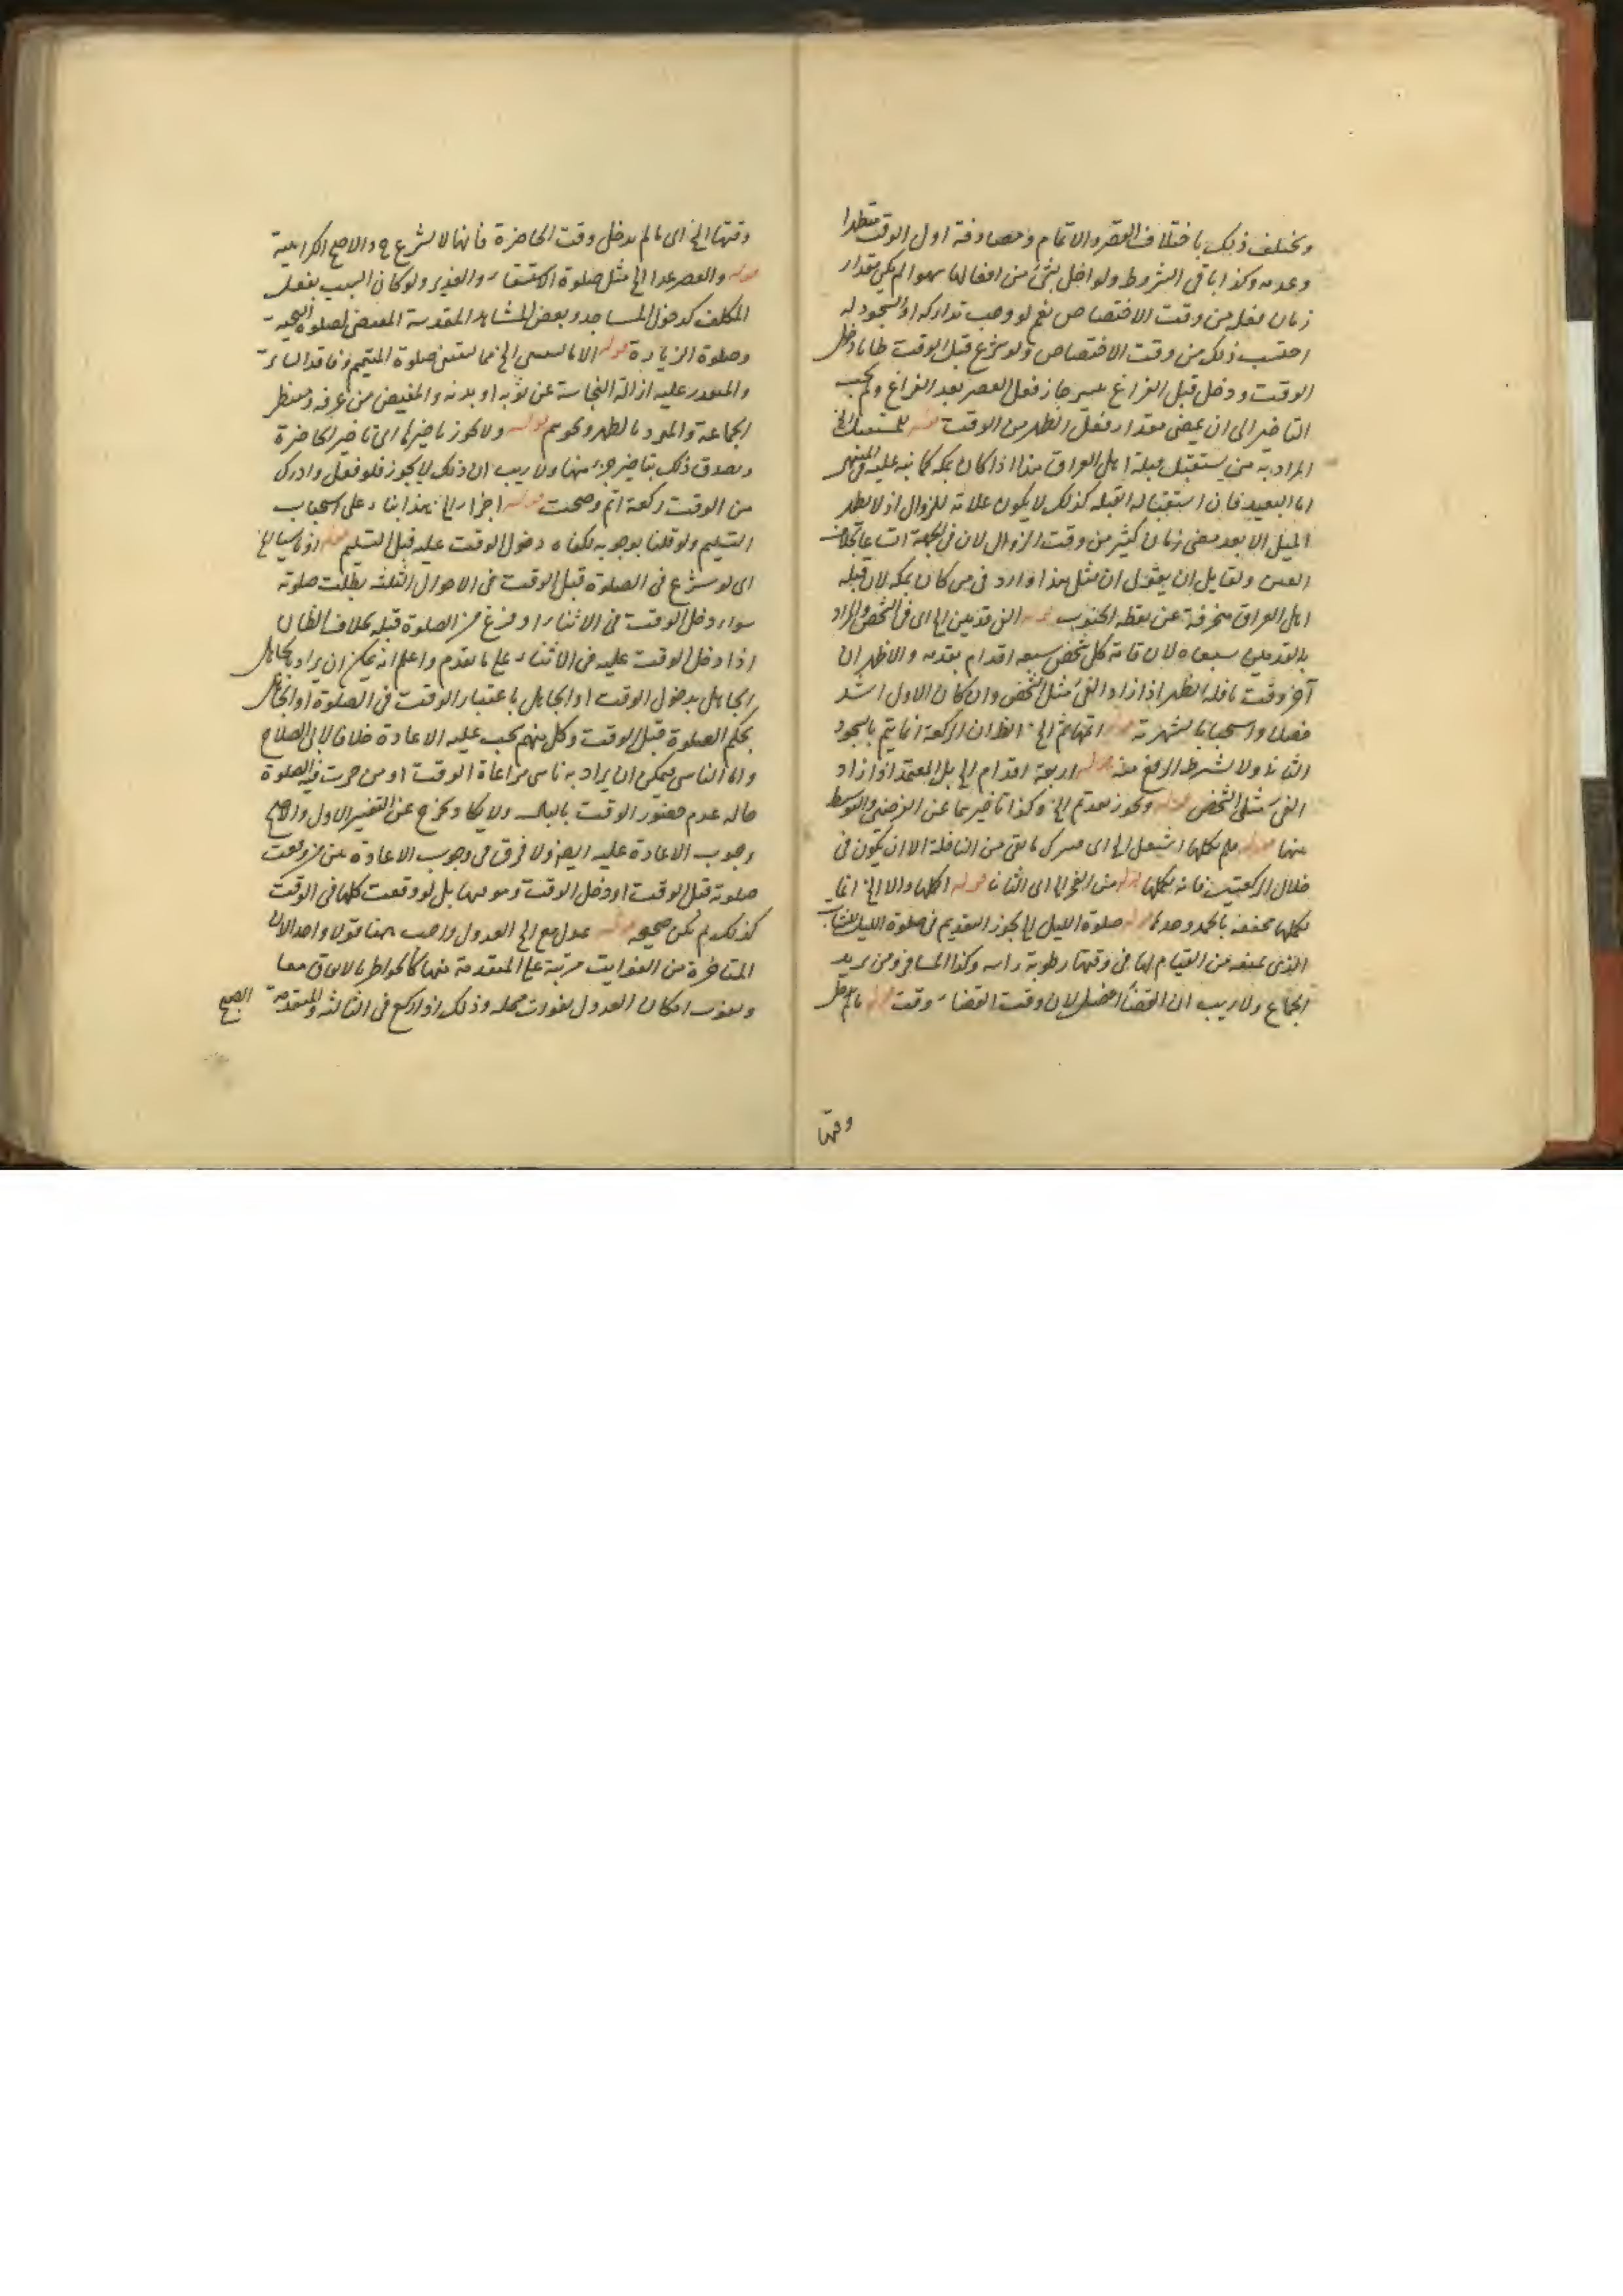 ويختلف ذلك باختلاف القصر والاتمام ومصادفة اول الوقت متطهرا
وعدمه وكذا باقي الشروط ولو اخل بشئ من افعالها سهوا لم يكن مقدار
زمان فعله من وقت الاختصاص نعم لو وجب تداركه او السجود له
احتسب ذلك من وقت الاختصاص ولو شرع قبل الوقت ظانا دخل
الوقت ودخل قبل الفراغ جاز فعل العصر بعد الفراغ ولم يجب
التاخير الى ان يمضى مقدار فعل الظهر من الوقت قوله للمستقبل الخ
المراد به من يستقبل قبلة اهل العراق هذا اذا كان بمكة كما نبه عليه في المنتهى
اما البعيد فان استقباله القبلة كذلك لا يكون علامة للزوال اذ لا يظهر
الميل الا بعد مضى زمان كثير من وقت الزوال لان في الجهة اتساعا بخلاف
العين ولقايل ان يقول ان مثل هذا وارد في من كان بمكة لان قبلة
اهل العراق منحرفة عن نقطة الجنوب قوله الى قدمين الخ اى في الشخص والمراد
بالقدمين سبعاه لان قامة كل شخص سبعة اقدام بقدمه والاظهر ان
آخر وقت نافلة الظهر اذا زاد الفئ مثل الشخص وان كان الاول اشد
فضلا واستحبابا لشهرته قوله اتمها ثم الخ الظ ان الركعة انما يتم بالسجود
الثانى ولا يشترط الرفع منه قوله اربعة اقدام الخ بل المعتمد اذا زاد
الفئ مثلى الشخص قوله ويجوز تقديم الخ وكذا تاخيرهما عن الفرضين والتوسط
منها قوله ولم يكملها اشتغل الخ اى يترك ما بقى من النافلة الا ان يكون في
خلال الركعتين فانه يكملها قوله من الفجر الخ اى الثانى قوله اكملها والا الخ انما
يكملها مخففة بالحمد وحدها قوله صلوة الليل الخ يجوز التقديم في صلوة الليل للشاب
الذى يمنعه من القيام لها في وقتها رطوبة راسه وكذا المسافر ومن يريد
الجماع ولا ريب ان القضاء افضل لان وقت القضاء وقت قوله ما لم يدخل
وقتها
وقتها الخ اى ما لم يدخل وقت الحاضرة فانها لا يشرع ح والاصح الكراهية
قوله والعصر عدا الخ مثل صلوة الاستسقاء والغدير ولو كان السبب بفعل
المكلف كدخول المساجد وبعض المشاهد المقدسة المقتضى لصلوة التحية
وصلوة الزيارة قوله الا ما يستثنى الخ مما يستثنى صلوة المتيمم وفاقد الساتر
والمتعذر عليه ازالة النجاسة عن ثوبه او بدنه والمفيض من عرفة ومنتظر
الجماعة والمبرد بالظهر ونحوهم قوله ولا يجوز تاخيرها اى تاخير الحاضرة
ويصدق ذلك بتاخير جزء منها ولا ريب ان ذلك لا يجوز فلو فعل وادرك
من الوقت ركعة اتم وصحت قوله اجزأ الخ هذا بناء على استحباب
التسليم ولو قلنا بوجوبه لكفاه دخول الوقت عليه قبل التسليم قوله او ناسيا الخ
اى لو شرع في الصلوة قبل الوقت في الاحوال الثلثة بطلت صلوته
سواء دخل الوقت في الاثناء او فرغ من الصلوة قبله بخلاف الظان
اذا دخل الوقت عليه في الاثناء على ما تقدم واعلم انه يمكن ان يراد بالجاهل
الجاهل بدخول الوقت او الجاهل باعتبار الوقت في الصلوة او الجاهل
بحكم الصلوة قبل الوقت وكل منهم يجب عليه الاعادة خلافا لابى الصلاح
واما الناسى فيمكن ان يراد به ناسى مراعاة الوقت او من جرت منه الصلوة
حالة عدم حضور الوقت بالبال ولا يكاد يخرج عن التفسير الاول والاصح
وجوب الاعادة عليه ايضا ولا فرق في وجوب الاعادة بين من وقعت
صلوته قبل الوقت او دخل الوقت وهو فيها بل لو وقعت كلها في الوقت
كذلك لم يكن صحيحة قوله عدل مع الخ العدول واجب هنا قولا واحدا لان
المتاخرة من الفوايت مرتبة على المتقدمة منها كالحواضر بالاتفاق منا
ويفوت امكان العدول بفوات محله وذلك اذا ركع في الثالثة والمتقدمة الصبح